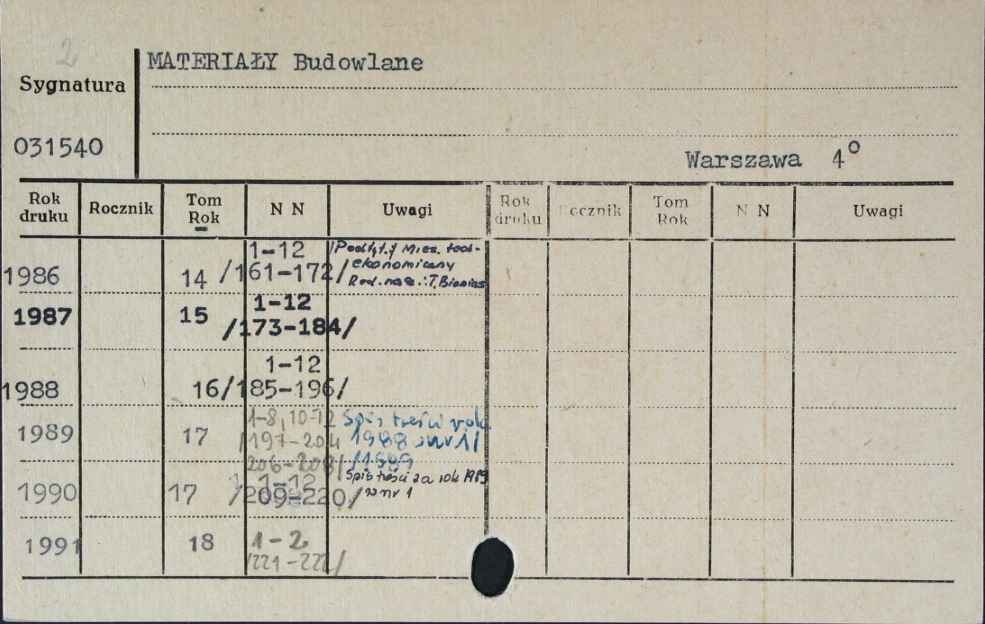 2
MATERIAŁY Budowlane
Sygnatura
031540
Warszawa 4°
Rok druku Rocznik Tom Rok N N Uwagi Rok druku Rocznik Tom Rok N N Uwagi
1-12
1986 14 /161-172/
ekonomiczny
1-12
1987 15
/173-184/
1-12
1988 16 /185-196/
1-8, 10-12 Spis treści rok
1989 17 /197-204 1988 w nr 1/
206-208/ /1989
1-12 Spis treści za rok 1989
1990 17 /209-220/ w nr 1
1991 18 1-2
/221-222/